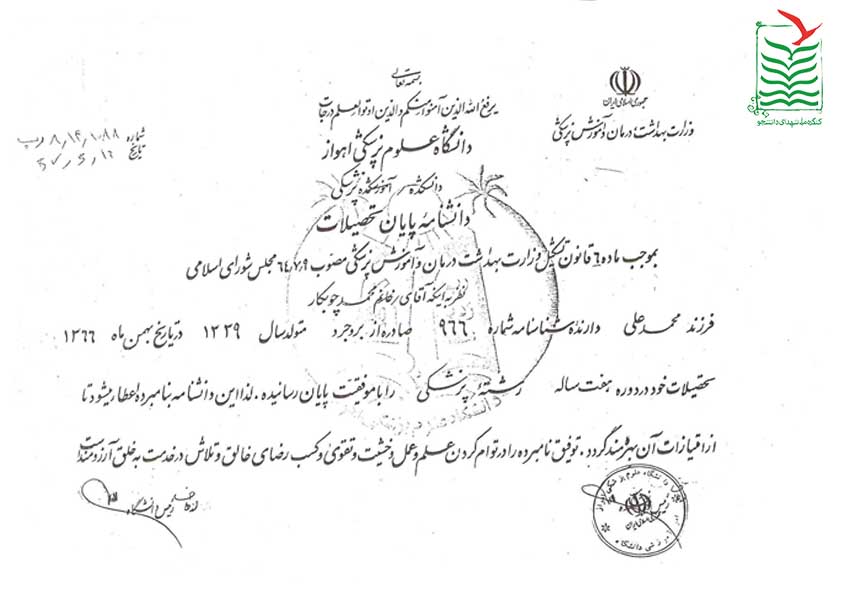 بسمه تعالی
یرفع الله الذین آمنوا منکم والذین اوتوا العلم درجات
جمهوری اسلامی ایران
وزارت بهداشت درمان و آموزش پزشکی
کنگره ملی شهدای دانشجو
دانشگاه علوم پزشکی اهواز
شماره
تاریخ
دانشکده / آموزشکده پزشکی
دانشنامه پایان تحصیلات
بموجب ماده ٦ قانون تشکیل وزارت بهداشت درمان و آموزش پزشکی مصوب ٦٤،٧،٩ مجلس شورای اسلامی
نظر به اینکه آقای / خانم محمد چوبکار
فرزند محمد علی دارنده شناسنامه شماره ٩٦٦ صادره از بروجرد متولد سال ١٣٣٩ در تاریخ بهمن ماه ١٣٦٦
تحصیلات خود در دوره هفت ساله رشته پزشکی را با موفقیت پایان رسانیده . لذا این دانشنامه بنامبرده اعطا میشود تا
از امتیازات آن بهره مند گردد . توفیق نامبرده را در توام کردن علم و عمل و خشیت و تقوی و کسب رضای خالق و تلاش در خدمت به خلق آرزومند است
رئیس دانشگاه